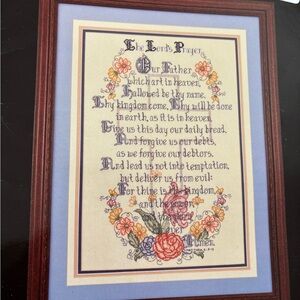 The Lord's Prayer
Our Father
which art in heaven,
Hallowed be thy name.
Thy kingdom come, Thy will be done
in earth, as it is in heaven.
Give us this day our daily bread.
And forgive us our debts,
as we forgive our debtors.
And lead us not into temptation,
but deliver us from evil:
For thine is the kingdom,
and the power,
and the glory
ever
Amen.